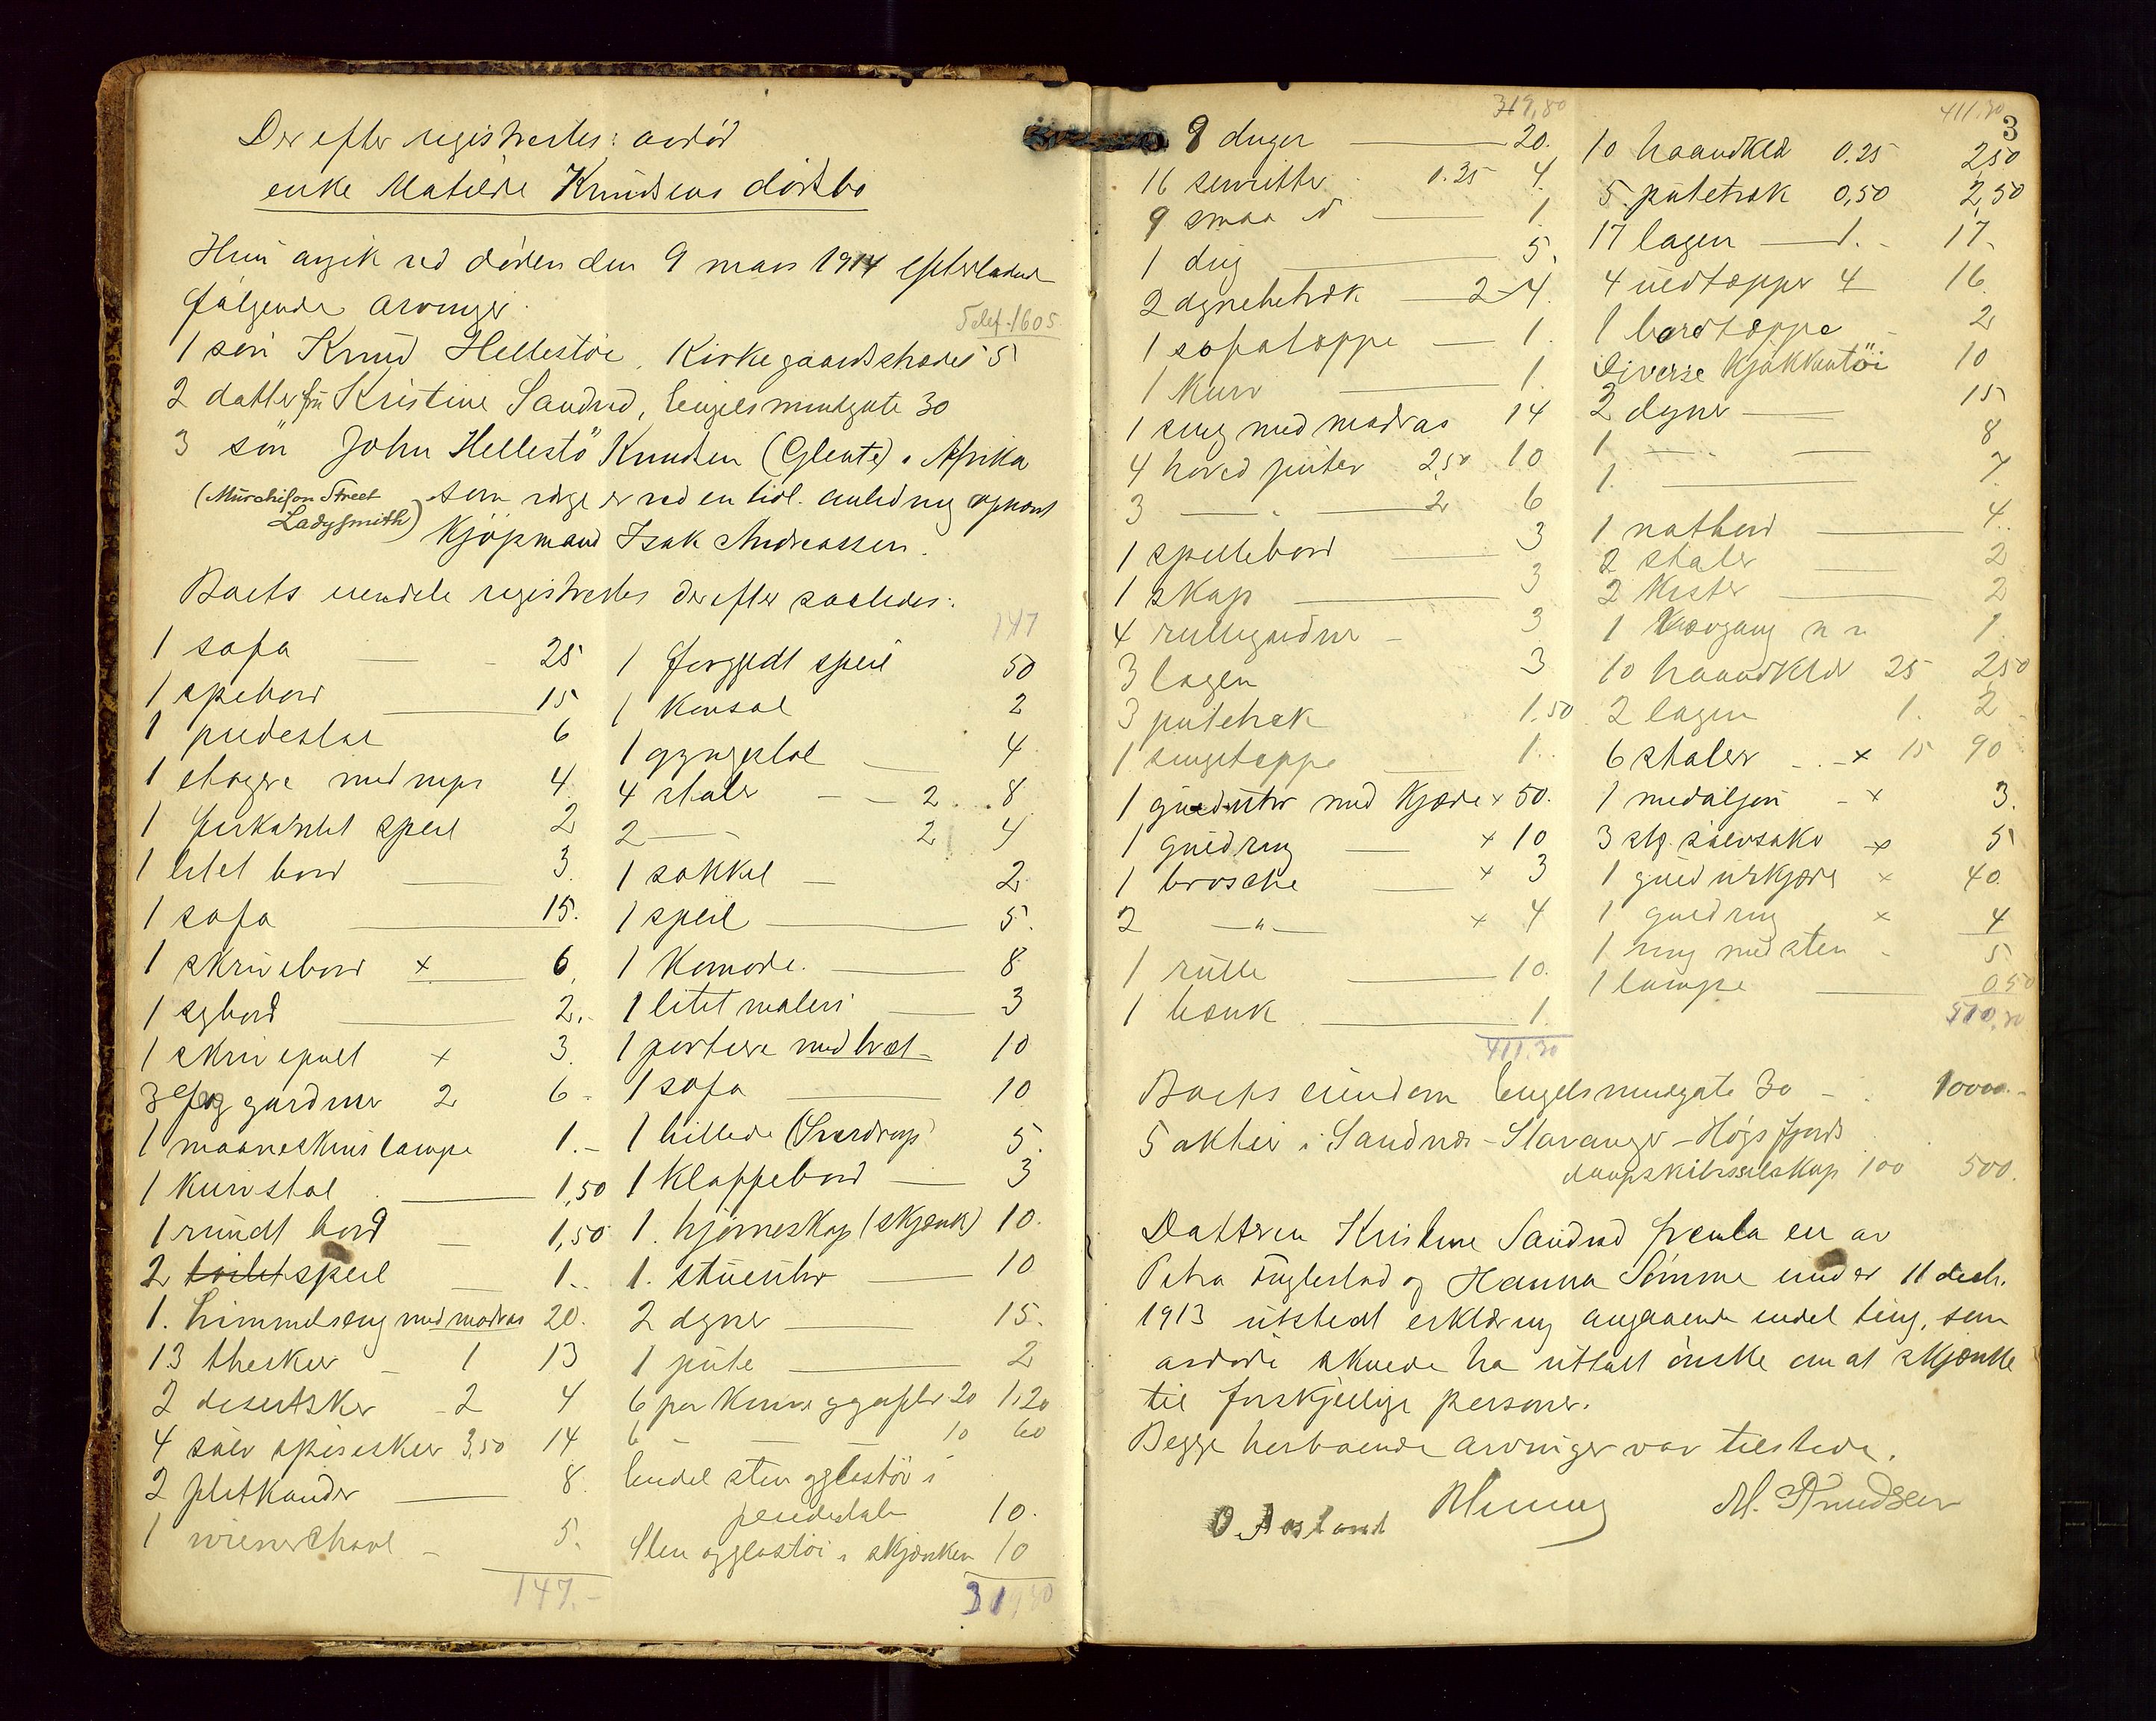 Derefter registrertes: avdød
enke Matilde Knudsens dødsbo
Hun avgik ved døden den 9 mars 1914 efterladende
følgende arvinger.
Telef. 1605
1 søn Knud Hellestøe, Kirkegaardstrædet 5
2 datter fru Kristine Sandved, Engelsmindgate 30
3 søn John Hellestö Knudsen (Glente) i Afrika
(Murchison Street
Ladysmith)
som ifølge er ved en tidl. anledning opnævnt
Kjöpmand Isak Andreassen.
Boets eiendele registrertes derefter saaledes:
1 sofa 25
1 spebord 15
1 piedestal 6
1 etagere med nips 4
1 firkantet speil 2
1 litet bord 3.
1 sofa 15.
1 skrivebord x 6.
1 sybord 2.-
1 skrivepult x 3.
3 fag gardiner 2 6-
1 maaneskinslampe 1.-
1 kurvstol 1,50
1 rundt bord 1,50
2 toilet speil 1.-
1. himmelseng med madras 20.
13 theskeer 1 13
2 desertskeer 2 4
4 sølv spiseskeer 3,50 14
2 pletkander 8.
1 wienerchavl 5.
147.-
147
1 forgyldt speil 50
1 konsol 2
1 gyngestol 4
4 stoler 2 8
2 — 2 4
1 sokkel 2
1 speil 5.
1 Komode. 8
1 litet maleri 3
1 portiere med bræt 10
1 sofa 10
1 billede (Sverdrup) 5.
1 Klappebord 3
1. hjørneskap (skjænk) 10.
1. stueuhr 10
2 dyner 15.
1 pute 2
6 par knive og gafler 20 1,20
6 — 10 60
Endel sten og glastöi i
piedestalen 10.
Sten og glastöi i skjænken 10
319,80
319,80
9 duger 20.
16 servietter 0.25 4.
9 smaa d 1
1 dug 5.
2 dynebetræk 2 4.
1 sofatæppe 1.
1 Kurv 1.
1 seng med madras 14
4 hoved puter 2,50 10
3 — 2 6
1 spillebord 3
1 skap 3
4 rullegardiner 3
3 lagen 3
3 putetræk 1,50
1 sengetæppe 1.
1 gulduhr med kjæde x 50.
1 guldring x 10
1 brosche x 3
2 —"— x 4
1 rulle 10.
1 bænk 1.
411.30
411.30
3
10 haandklæ 0.25 2,50
5 putetræk 0,50 2,50
17 lagen 1.- 17.
4 uldtæpper 4 16
1 bordtæppe 2
Diverse Kjøkkentöi 10
2 dyner 15
1 — 8
1. — 7.
1 natbord 4.
2 stoler 2
2 Kister 2
1 1.
10 haandklær 25 2,50
2 lagen 1. 2
6 stoler x 15 90
1 medaljon x 3.
3 stg. sølvsaker x 5
1 guld urkjæde x 40.
1 guldring x 4
1 ring med sten 5
1 lampe 0.50
Boets eiendom Engelsmindgate 30 10000.-
5 aktier i Sandnæs-Stavanger-Högsfjords
dampskibsselskap 100 500.
Datteren Kristine Sandved fremla en av
Petra Fuglestad og Hanna Sömme under 11 decbr.
1913 utstedt erklæring angaaende endel ting, som
avdøde skulde ha uttalt ønske om at skjænke
til forskjellige personer.
Begge herboende arvinger var tilstede.
O. Aasland M. Knudsen